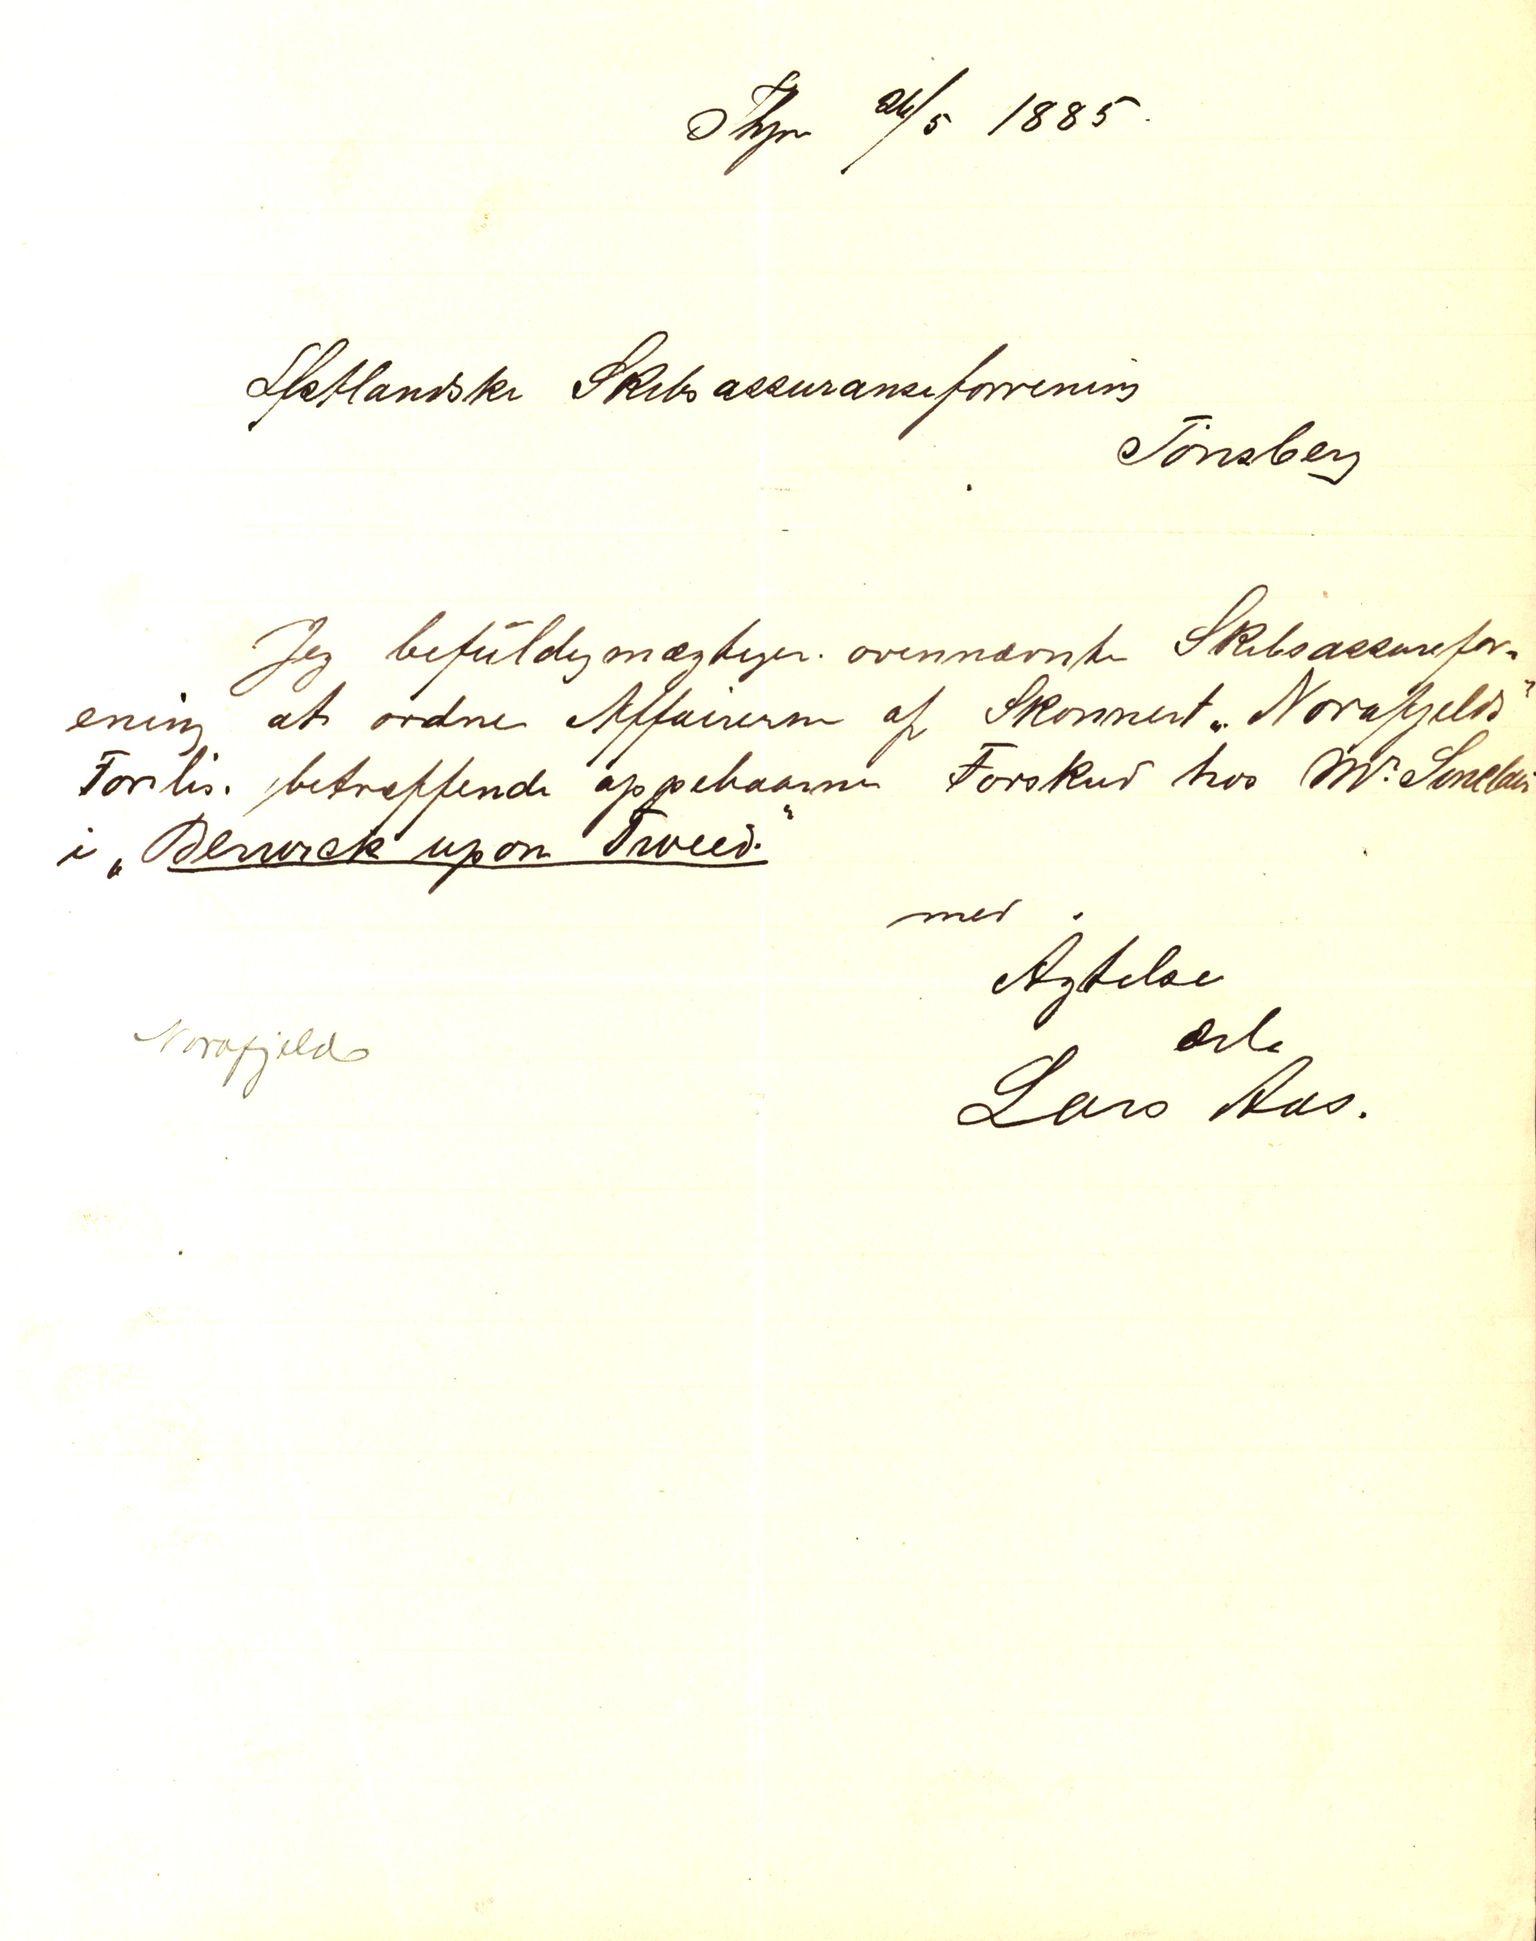 26/5 1885.
Østlandske Skibsassuranseforrening
Tönsberg
Jeg befüldegmægtiger ovennævnte Skibsassurefor-
ening at ordne Affairerne af Skonnert „Norafjelds"
Forlis. betreffende oppebaarne Forskud hos Mr. Sinclair
i „Berwick upon Tweed."
med
Agtelse
ærb
Lars Aas.
Norafjeld